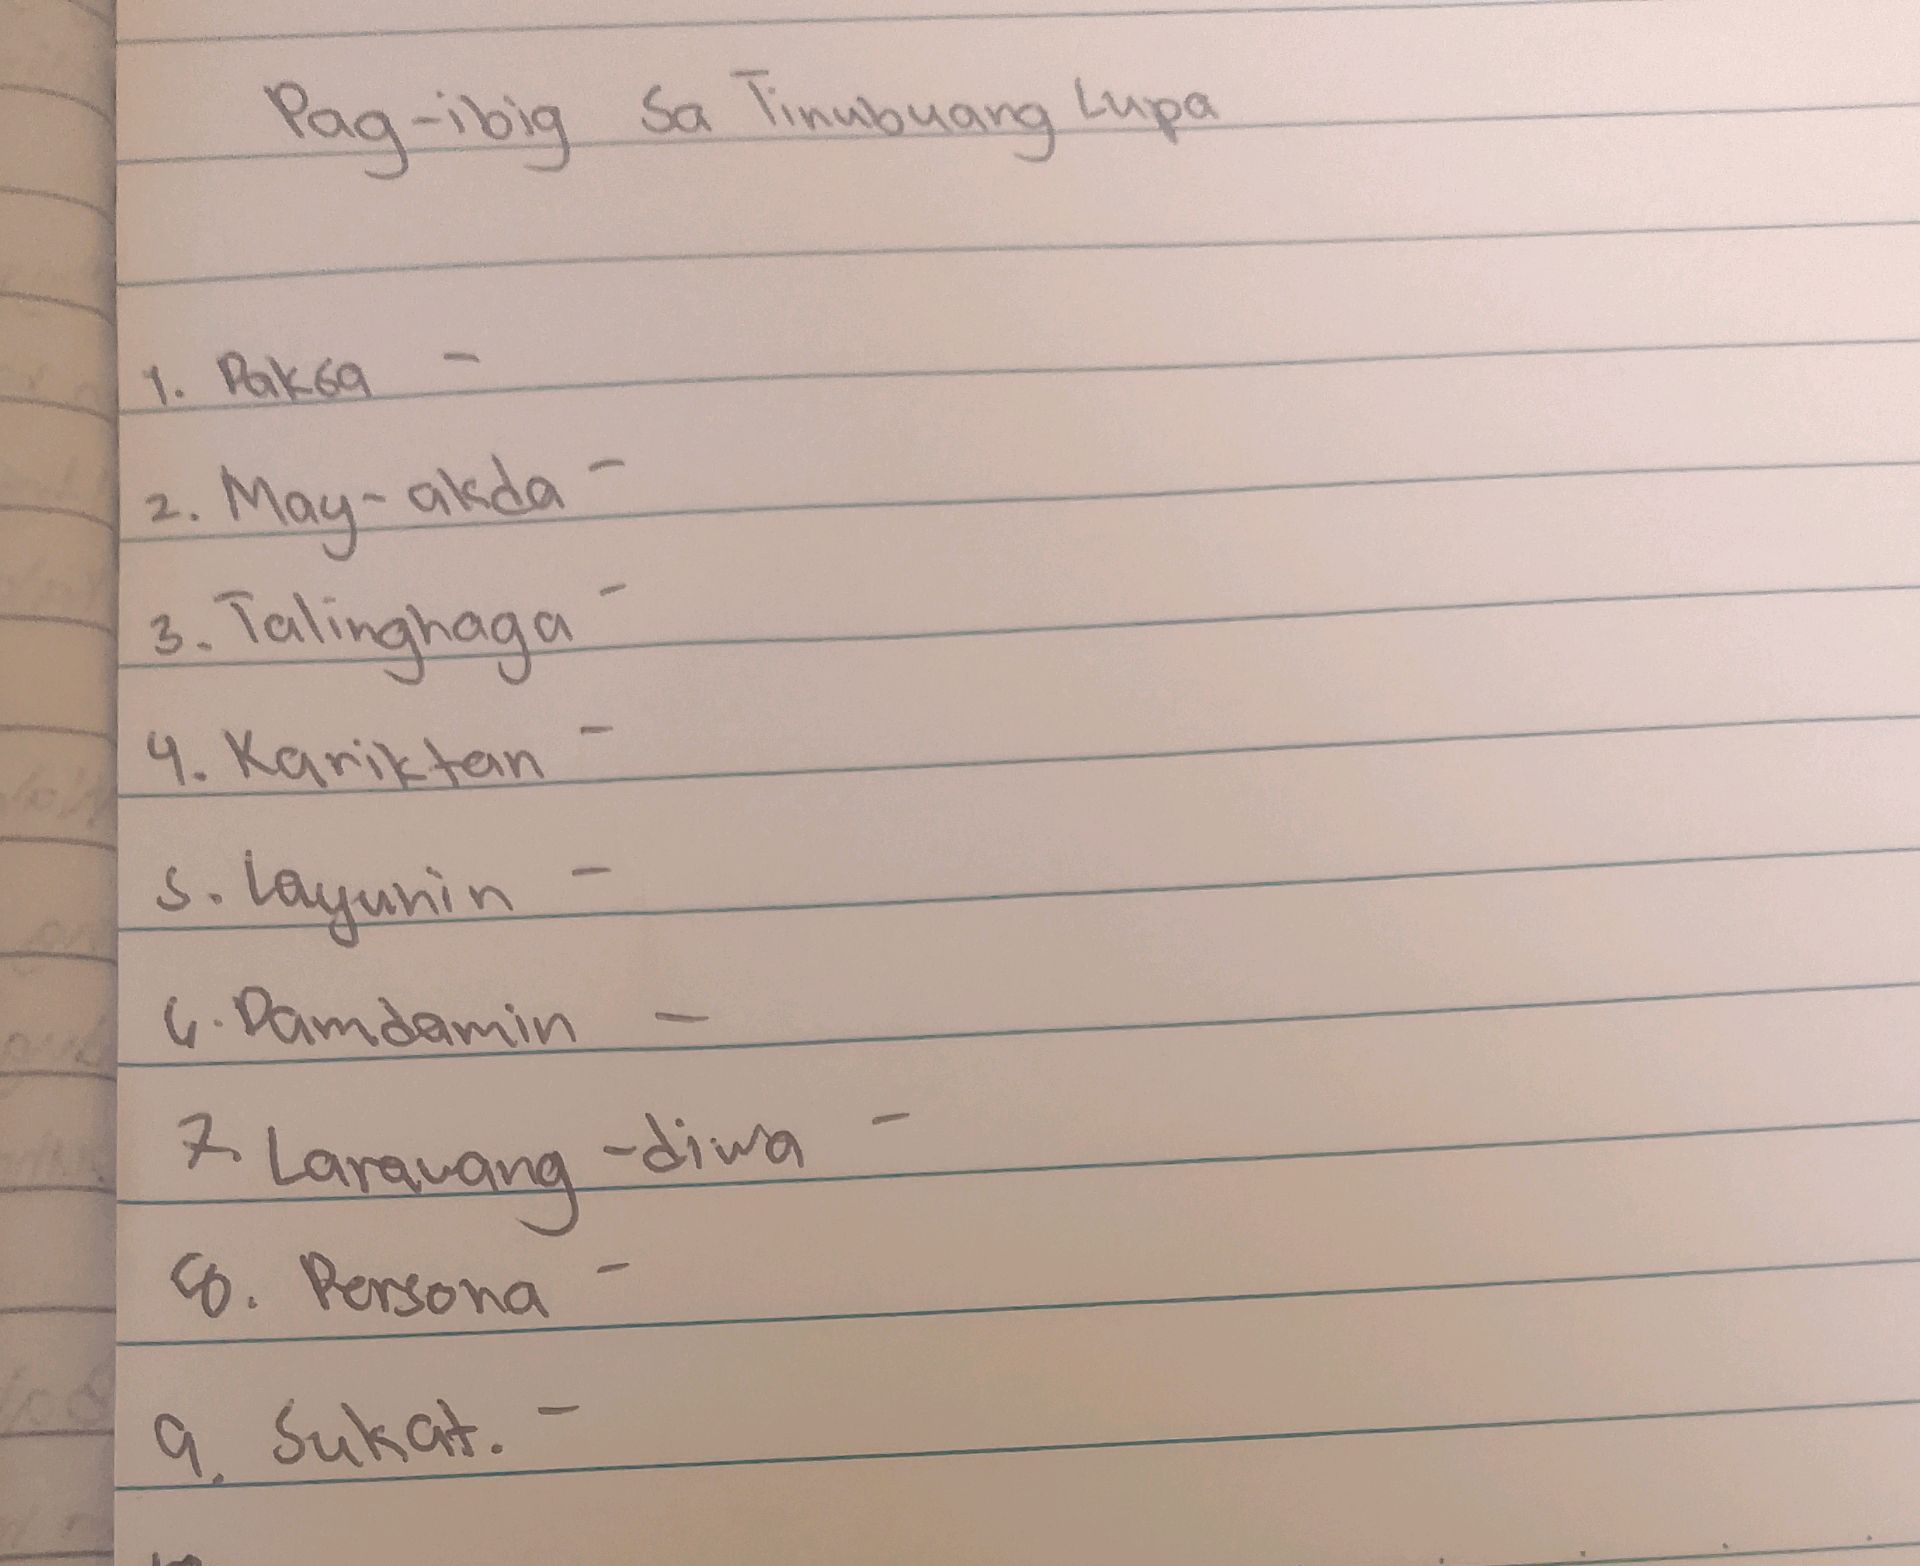 Pag-ibig sa Tinubuang Lupa
1. Paksa -
2. May-akda -
3. Talinghaga -
4. Kariktan -
5. Layunin -
6. Damdamin -
7. Larauang -diwa -
8. Persona -
9. Sukat. -